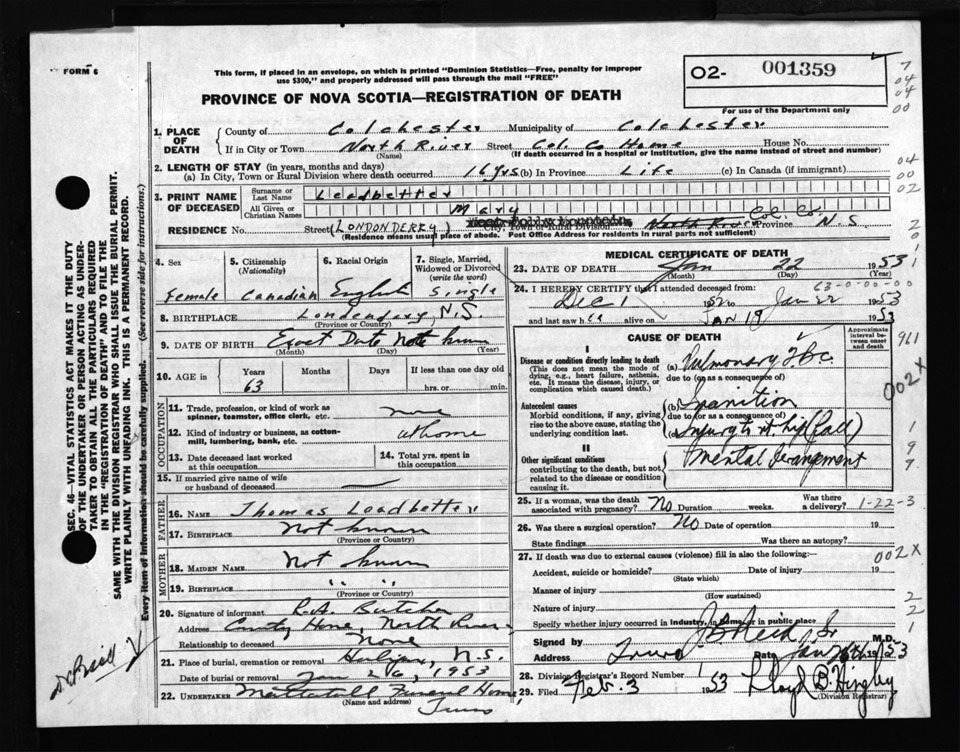 FORM 6
This form, if placed in an envelope, on which is printed "Dominion Statistics—Free, penalty for improper
use $300," and properly addressed will pass through the mail "FREE"
PROVINCE OF NOVA SCOTIA—REGISTRATION OF DEATH
O2- 001359
For use of the Department only
7
04
04
00
04
00
02
1. PLACE OF DEATH
County of Colchester Municipality of Colchester
If in City or Town North River Street Col. Co Home House No.
(Name) (If death occurred in a hospital or institution, give the name instead of street and number)
2. LENGTH OF STAY (in years, months and days)
(a) In City, Town or Rural Division where death occurred 16 yrs (b) In Province Life (c) In Canada (if immigrant)
3. PRINT NAME OF DECEASED
Surname or Last Name Leadbetter
All Given or Christian Names Mary
RESIDENCE No. Street (LONDONDERRY) City, Town or Rural Division North River Col. Co. Province N.S.
(Residence means usual place of abode. Post Office Address for residents in rural parts not sufficient)
4. Sex
Female
5. Citizenship
(Nationality)
Canadian
6. Racial Origin
English
7. Single, Married,
Widowed or Divorced
(write the word)
Single
8. BIRTHPLACE Londonderry N.S.
(Province or Country)
9. DATE OF BIRTH Exact Date Not known
(Month) (Day) (Year)
10. AGE in
Years Months Days If less than one day old
63 hrs. or min.
OCCUPATION
11. Trade, profession, or kind of work as
spinner, teamster, office clerk, etc. none
12. Kind of industry or business, as cotton-
mill, lumbering, bank, etc. at home
13. Date deceased last worked
at this occupation
14. Total yrs. spent in
this occupation
15. If married give name of wife
or husband of deceased —
FATHER
16. NAME Thomas Leadbetter
17. BIRTHPLACE Not known
(Province or Country)
MOTHER
18. MAIDEN NAME Not known
19. BIRTHPLACE " "
(Province or Country)
20. Signature of informant R.A. Butcher
Address County Home, North River
Relationship to deceased None
21. Place of burial, cremation or removal Halifax, N.S.
Date of burial or removal Jan 26, 1953
22. UNDERTAKER Mattatall Funeral Home
(Name and address)
Truro
MEDICAL CERTIFICATE OF DEATH
23. DATE OF DEATH Jan 22 1953
(Month) (Day) (Year)
24. I HEREBY CERTIFY that I attended deceased from: 63-0-00-00
Dec 1 1952 to Jan 22 1953
and last saw her alive on JAN 19 1953
CAUSE OF DEATH
Approximate
interval be-
tween onset
and death
I
Disease or condition directly leading to death
(This does not mean the mode of
dying, e.g., heart failure, asthenia,
etc. It means the disease, injury, or
complication which caused death.)
(a) Pulmonary Tbc.
due to (or as a consequence of)
Antecedent causes
Morbid conditions, if any, giving
rise to the above cause, stating the
underlying condition last.
(b) Inanition
due to (or as a consequence of)
(c) Injury to rt. hip (fall)
II
Other significant conditions
contributing to the death, but not
related to the disease or condition
causing it.
Mental derangement
002X
25. If a woman, was the death
associated with pregnancy? No Duration weeks. Was there
a delivery? 1-22-3
26. Was there a surgical operation? No Date of operation 19
State findings Was there an autopsy?
27. If death was due to external causes (violence) fill in also the following: 002X
Accident, suicide or homicide? Date of injury 19
(State which)
Manner of injury
(How sustained)
Nature of injury
Specify whether injury occurred in industry, in home, or in public place
Signed by J B Reid, Sr M.D.
Address Truro Date Jan 1953
28. Division Registrar's Record Number 1
29. Filed Feb. 3 1953 Lloyd B. Hingley
(Division Registrar)
SEC. 46—VITAL STATISTICS ACT MAKES IT THE DUTY
OF THE UNDERTAKER OR PERSON ACTING AS UNDER-
TAKER TO OBTAIN ALL THE PARTICULARS REQUIRED
IN THE "REGISTRATION OF DEATH" AND TO FILE THE
SAME WITH THE DIVISION REGISTRAR WHO SHALL ISSUE THE BURIAL PERMIT.
WRITE PLAINLY WITH UNFADING INK. THIS IS A PERMANENT RECORD.
Every item of information should be carefully supplied. (See reverse side for instructions.)